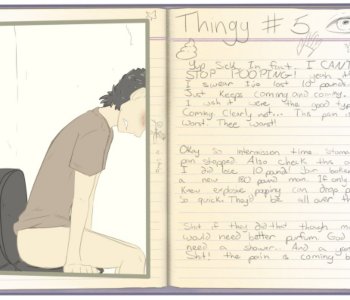 Thingy #5
Yup Sick. In fact. I CAN'T
STOP POOPING! yeah th
I swear I've lost 10 pounds.
Just keeps coming and coming.
I wish it were the good typ
Coming. Clearly not... This pain i
Worst. Thee worst!
Okay so intermission time. Stoma
pain stopped. Also check this o
I did lose 10 pound!
a new 180 pound man. If only
knew explosive pooping can drop p
So quick. They'd be all over th
Shit if they did that though ma
would need better parfum. God
need a shower. And a
Shit! the pain is coming b